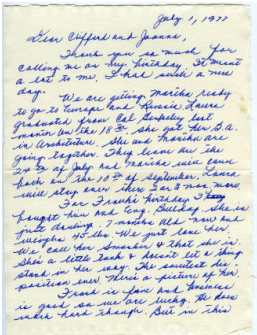 July 1, 1977
Dear Clifford and Joanna,
Thank you so much for
calling me on my birthday. It meant
a lot to me. I had such a nice
day.
We are getting Martha ready
to go to Europe and Russia. Laura
graduated from Cal Berkeley last
month on the 18th. She got her B.A.
in Architecture. She and Martha are
going together. They leave on the
of July and Martha will come
back on the 10th of September. Laura
will stay over there for 2 mos. more.
For Frank's birthday I
bought him an Eng. Bulldog. She is
just darling. 7 months old now and
weighs 45 lbs. We just love her.
We call her Smasher & that she is.
She's a little tank & doesn't let a thing
stand in her way. The sweetest dis-
position ever. Here's a picture of her.
Frank is fine and business
is good so we are lucky. He does
work hard though. But in this